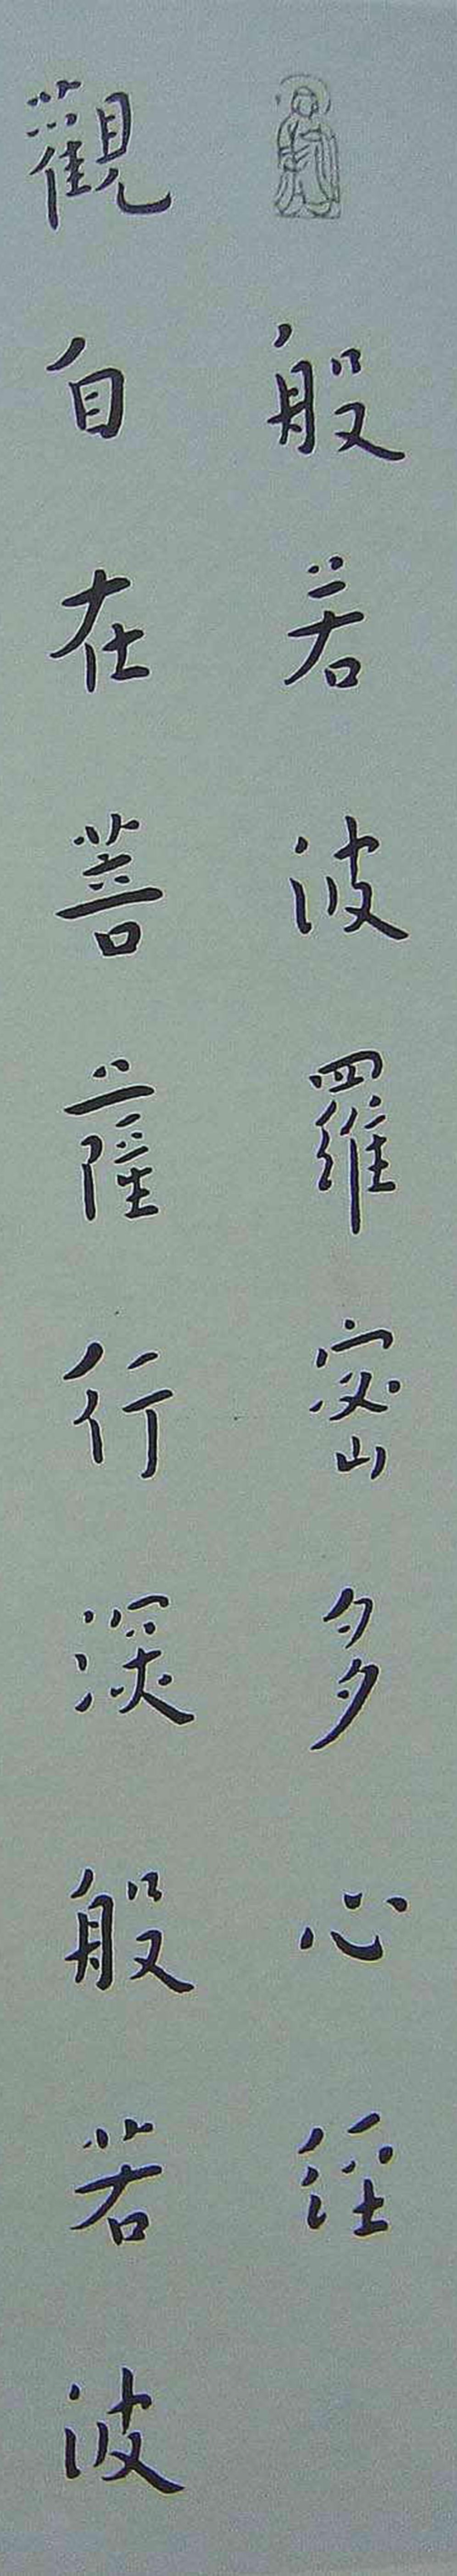 般若波羅蜜多心經
觀自在菩薩行深般若波